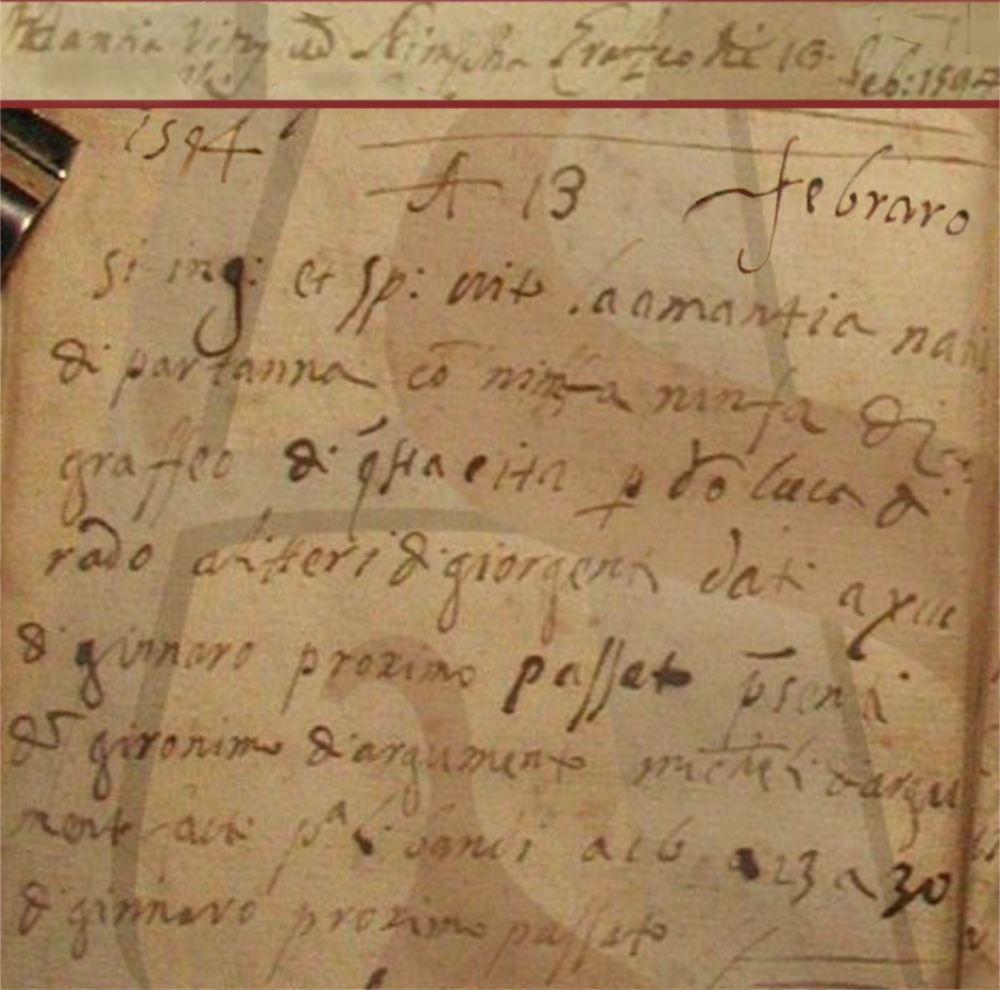 ad Nimpha Graffeo die 13.
feb: 1594
1594
A 13 febraro
Si ing: et sp: vito aamantia
di partanna cō ninfa ninfa di
graffeo di q̄sta cita p do luca di
rado aliteri di giorgenti dati a xvii
di ginnaro proximo passato p̄senti
gironimo di argumento micheli di argu
mento facti pa li banci a 16 a 23 a 30
di ginnaro proximo passato